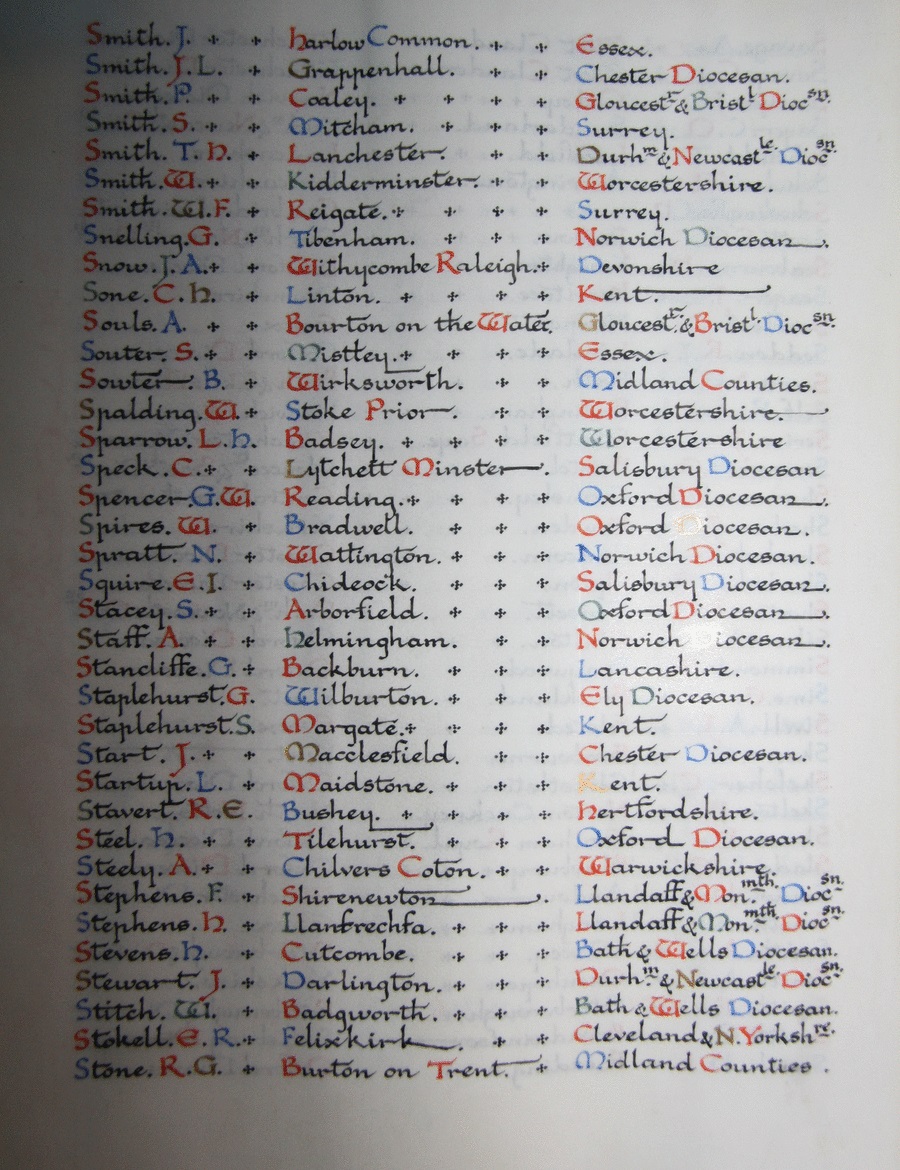 Smith. J. + + Harlow Common. + + Essex.
Smith. J. L. + Grappenhall. + + Chester Diocesan.
Smith. P. + Coaley. + + + + Gloucestr. & Bristl. Diocsn.
Smith. S. + + Mitcham. + + + Surrey.
Smith. T. H. + Lanchester. + Durhm. & Newcastle. Diocsn.
Smith. W. + + Kidderminster. + + Worcestershire.
Smith. W. F. + Reigate. + + + + Surrey.
Snelling. G. + Tibenham. + + + Norwich Diocesan.
Snow. J. A. + + Withycombe Raleigh. + Devonshire
Sone. C. H. + Linton. + + + + Kent.
Souls. A. + + Bourton on the Water. Gloucestr. & Bristl. Diocsn.
Souter. S. + + Mistley. + + + + Essex.
Sowter. B. + Wirksworth. + + Midland Counties.
Spalding. W. + Stoke Prior. + + Worcestershire.
Sparrow. L. H. Badsey. + + + + Worcestershire
Speck. C. + + Lytchett Minster. Salisbury Diocesan
Spencer. G. W. Reading. + + + + Oxford Diocesan.
Spires. W. + Bradwell. + + + Oxford Diocesan.
Spratt. N. + Wattington. + + + Norwich Diocesan.
Squire. E. J. + Chideock. + + + Salisbury Diocesan.
Stacey. S. + + Arborfield. + + + Oxford Diocesan.
Staff. A. + + Helmingham. + + Norwich iocesan.
Stancliffe. G. + Backburn. + + + Lancashire.
Staplehurst. G. Wilburton. + + + Ely Diocesan.
Staplehurst. S. Margate. + + + + Kent.
Start. J. + + Macclesfield. + + Chester Diocesan.
Startup. L. + Maidstone. + + + Kent.
Stavert. R. E. Bushey. + + + + Hertfordshire.
Steel. H. + Tilehurst. + + Oxford Diocesan.
Steely. A. + + Chilvers Coton. + + Warwickshire.
Stephens. F. + Shirenewton. Llandaff & Mon.mth. Diocsn.
Stephens. H. + Llanfrechfa. + + + Llandaff & Mon.mth. Diocsn.
Stevens. H. + Cutcombe. + + + Bath & Wells Diocesan.
Stewart. J. + Darlington. + + + Durhm. & Newcastle. Diocsn.
Stitch. W. + Badgworth. + + + Bath & Wells Diocesan.
Stokell. E. R. + Felixkirk. + + Cleveland & N. Yorkshre.
Stone. R. G. + Burton on Trent. + Midland Counties.